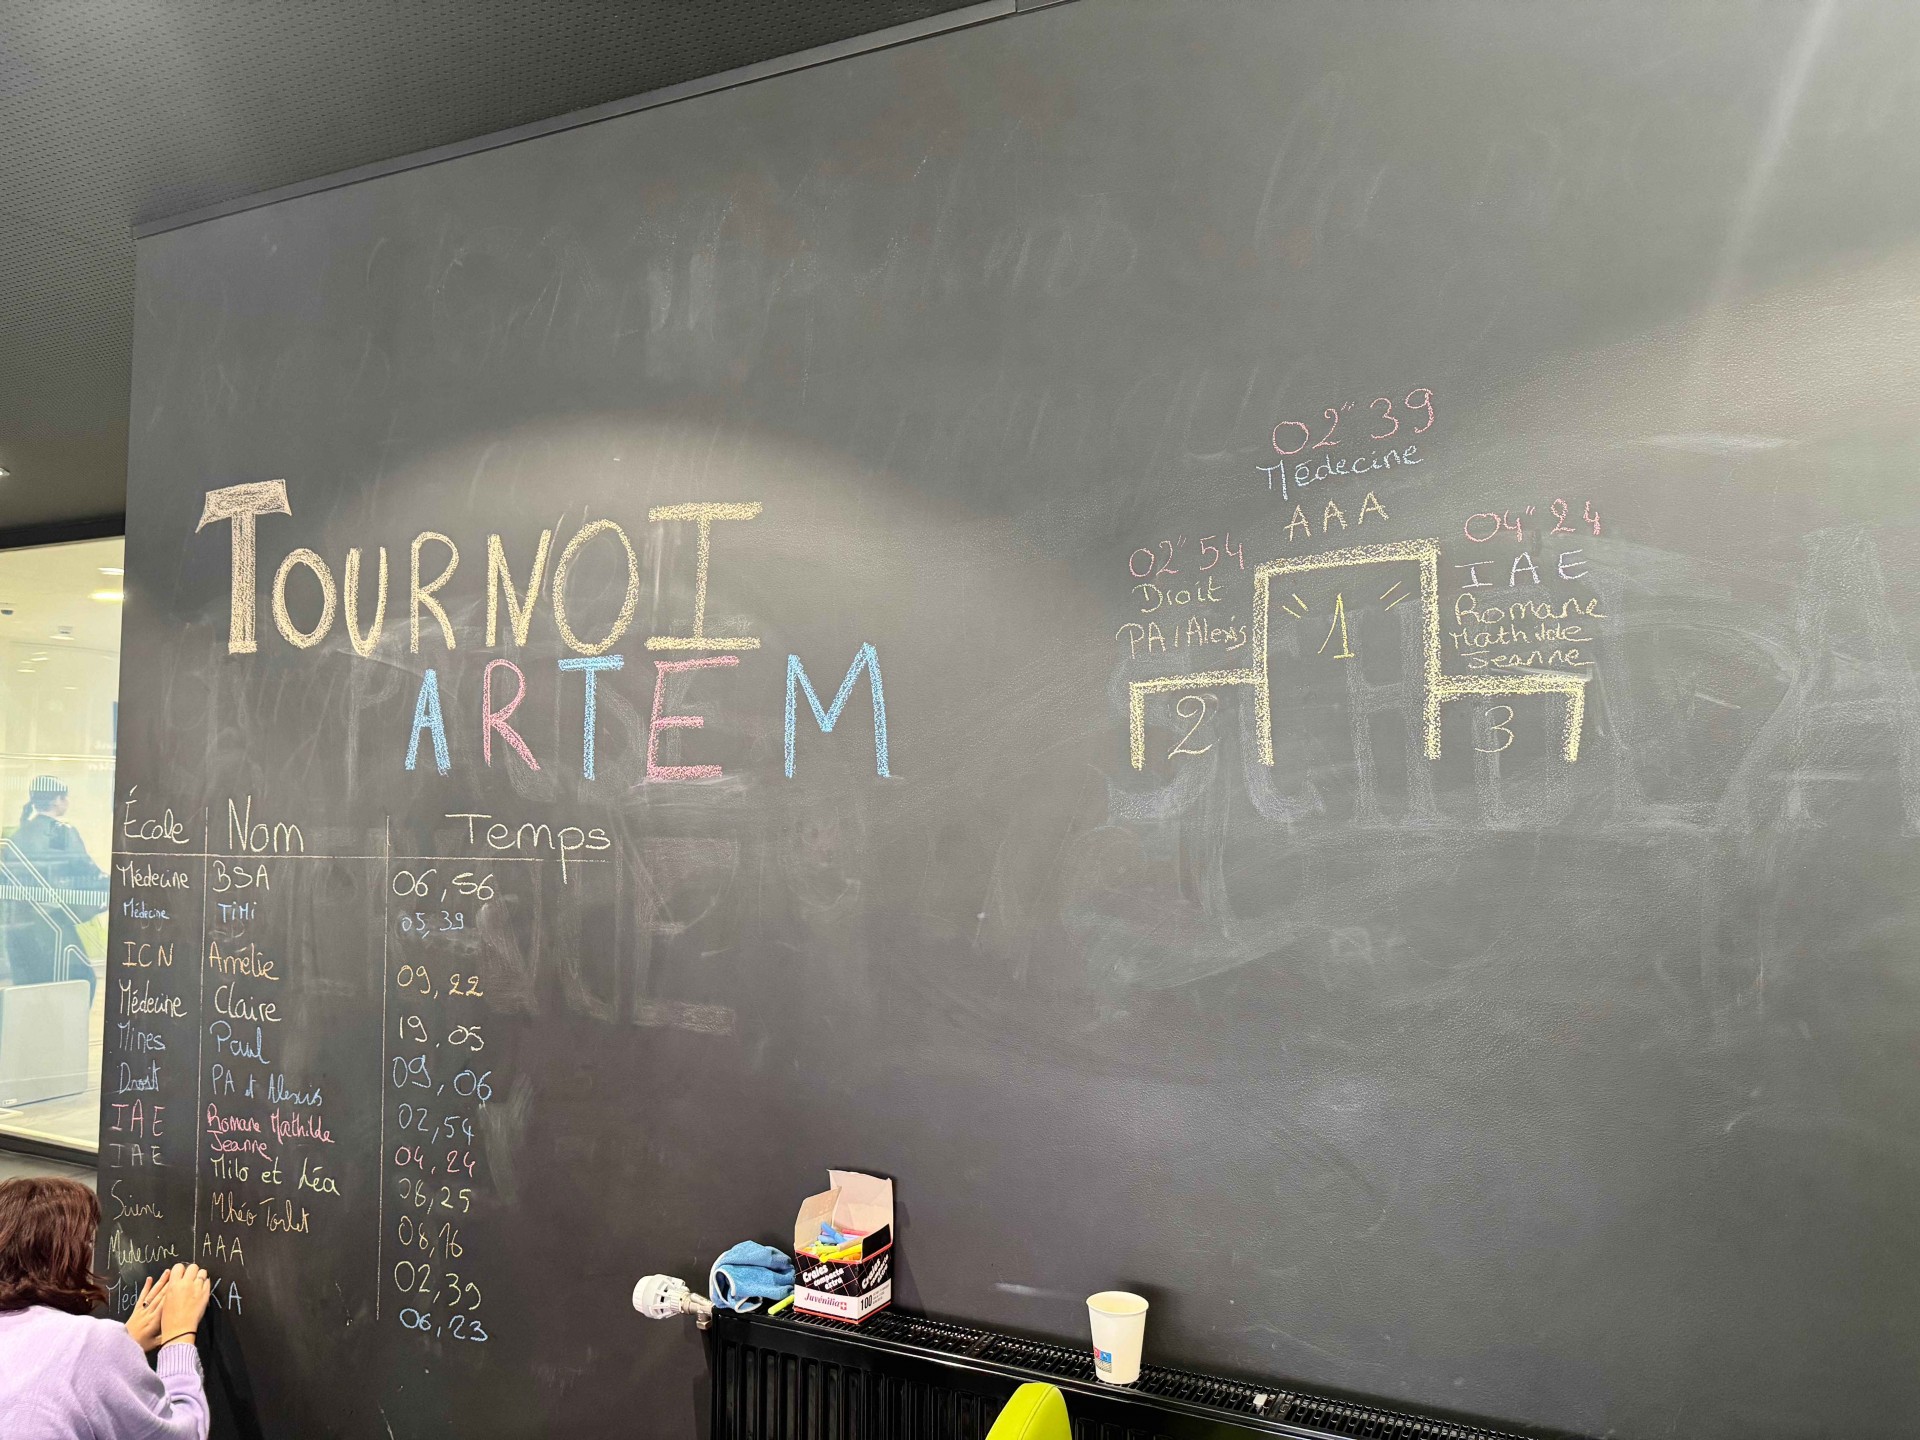 TOURNOI
ARTEM
École Nom Temps
Médecine BSA 06,56
Médecine TiMi 05,39
ICN Amélie 09,22
Médecine Claire 19,05
Mines Paul 09,06
Droit PA et Alexis 02,54
IAE Romane Mathilde
Jeanne 04,24
IAE Milo et Léa 08,25
Mhéo 08,16
Médecine AAA 02,39
Méd KA 06,23
02"39
Médecine
AAA
02"54
Droit
PA/Alexis
04"24
IAE
Romane
Mathilde
Jeanne
1
2
3
Craies
compacte
extra
Juvénilia
100